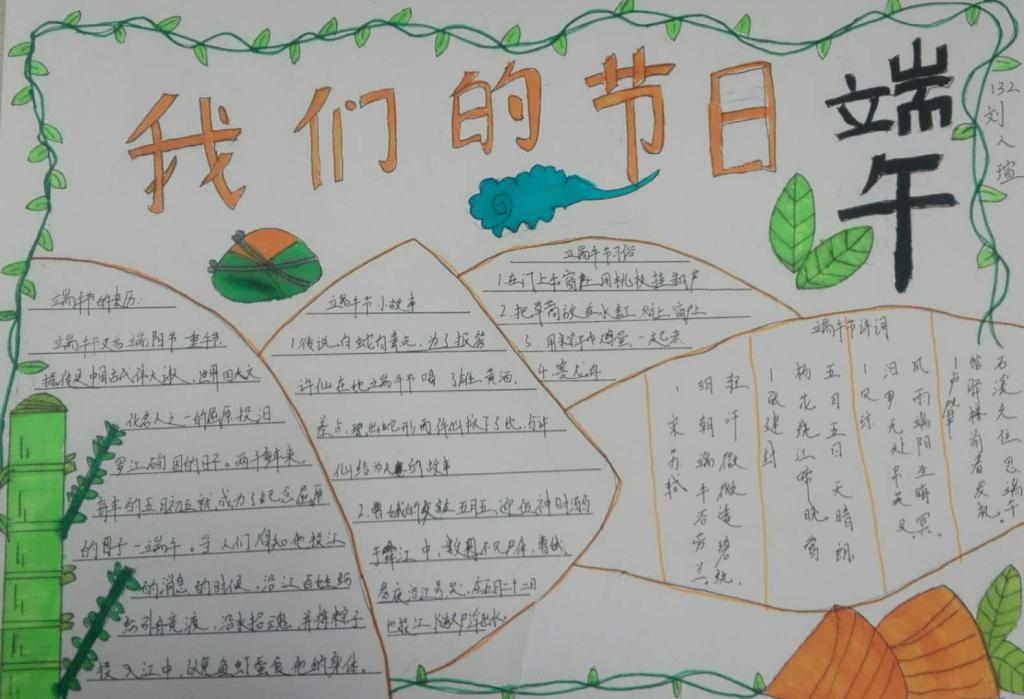 我们的节日
端午
132
刘人瑄
端午节的来历.
端午又名端阳节 重午节
据传是中国古代伟人 世界四大文
化名人之一的屈原投汨
罗江殉国的日子。两千年来,
每年的五月初五就成为了纪念屈原
的日子一端午。当人们得知他投江
的消息的时候,沿江百姓
引舟竞渡,沿水招魂,并将粽子
投入江中,以免鱼虾蚕食他的身体。
端午节小故事
1.传说 白蛇白素贞,为了报答
许仙在他端午节喝了雄黄酒.
差点 现出蛇形而许仙救了她与许
仙结为 的故事
2.曹娥的父亲五月五迎伍神时溺
于舜江中,数日不见尸体,曹娥
昼夜沿江号哭,在五月二十二日
也投江 父尸浮出水。
端午节习俗
1.在门上和窗上用桃枝挂葫芦
2.把草药放在水缸 窗上
3.用粽子和鸡蛋一起煮
4.赛龙舟
端午节诗词
石溪久住思端午
馆驿楼前看发机。
1卢肇
风雨端阳生晦冥
汨罗无处吊英灵
1贝琼
五月五日天晴朗
杨花绕江啼晓莺
1张建封
轻汗微微透碧纨
明朝端午浴芳兰
1宋 苏轼